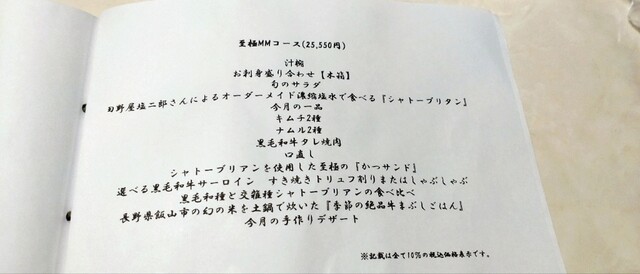 至極MMコース(25,550円)
汁椀
お刺身盛り合わせ【木箱】
旬のサラダ
田野屋塩二郎さんによるオーダーメイド濃縮塩水で食べる『シャトーブリタン』
今月の一品
キムチ2種
ナムル2種
黒毛和牛タレ焼肉
口直し
シャトーブリアンを使用した至極の『かつサンド』
選べる黒毛和牛サーロイン　すき焼きトリュフ削りまたはしゃぶしゃぶ
黒毛和種と交雑種シャトーブリアンの食べ比べ
長野県飯山市の幻の米を土鍋で炊いた『季節の絶品牛まぶしごはん』
今月の手作りデザート
※記載は全て10%の税込価格表示です。